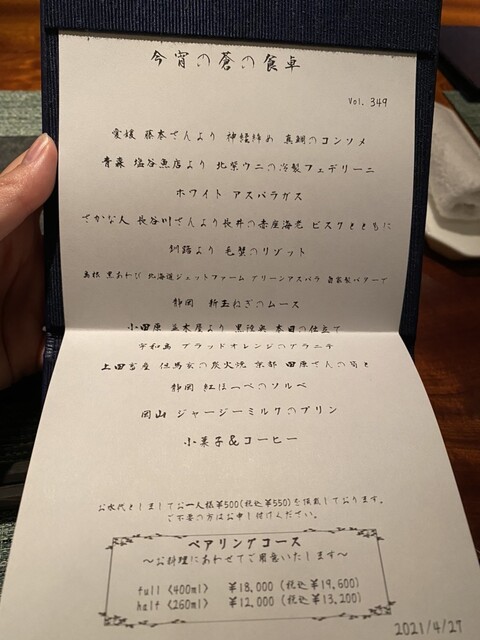 今宵の蒼の食卓
Vol. 349
愛媛 藤本さんより 神経締め 真鯛のコンソメ
青森 塩谷魚店より 北紫ウニの冷製フェデリーニ
ホワイト アスパラガス
さかな人 長谷川さんより 長井の赤座海老 ビスクとともに
釧路より 毛蟹のリゾット
島根 黒あわび 北海道ジェットファーム グリーンアスパラ 自家製バターで
静岡 新玉ねぎのムース
小田原 より 本日の仕立て
宇和島 ブラッドオレンジのグラニテ
上田畜産 但馬玄の炭火焼 京都 田原さんの筍と
静岡 紅ほっぺのソルベ
岡山 ジャージーミルクのプリン
小菓子&コーヒー
お水代としましてお一人様¥500(税込¥550)を頂戴しております。
ご不要の方はお申し付けください。
ペアリングコース
～お料理にあわせてご用意いたします～
full <400ml> ¥18,000 (税込¥19,600)
half <260ml> ¥12,000 (税込¥13,200)
2021/4/27